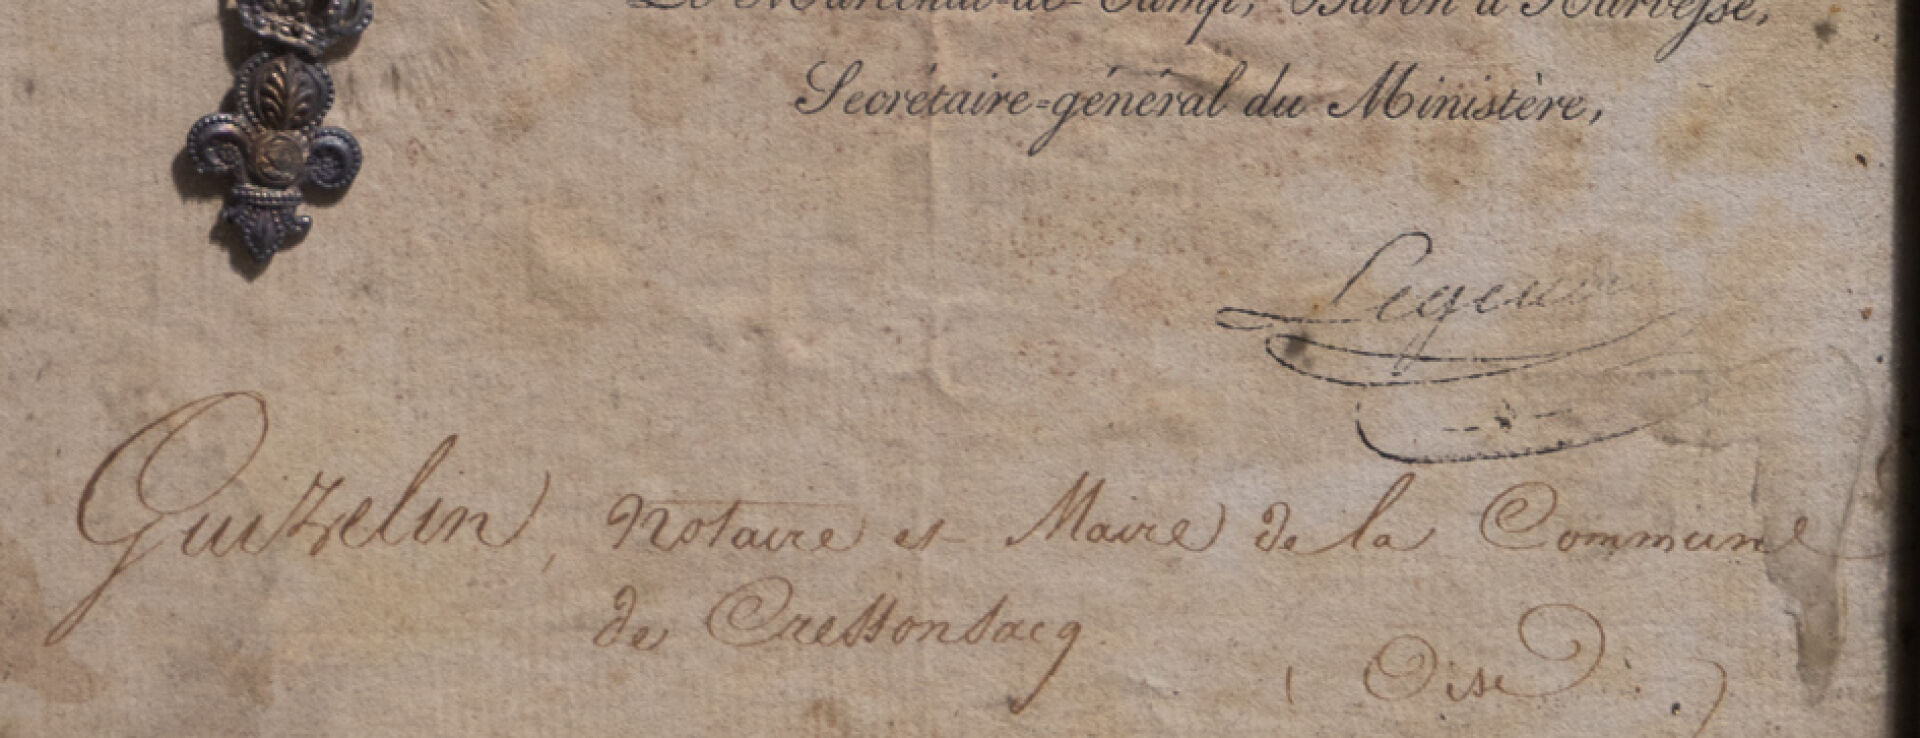 Le Maréchal-de-Camp, Baron d'Hurbesse,
Secrétaire-général du Ministère,
Guizelin, Notaire et Maire de la Commune
de Cressonsacq
( Oise )